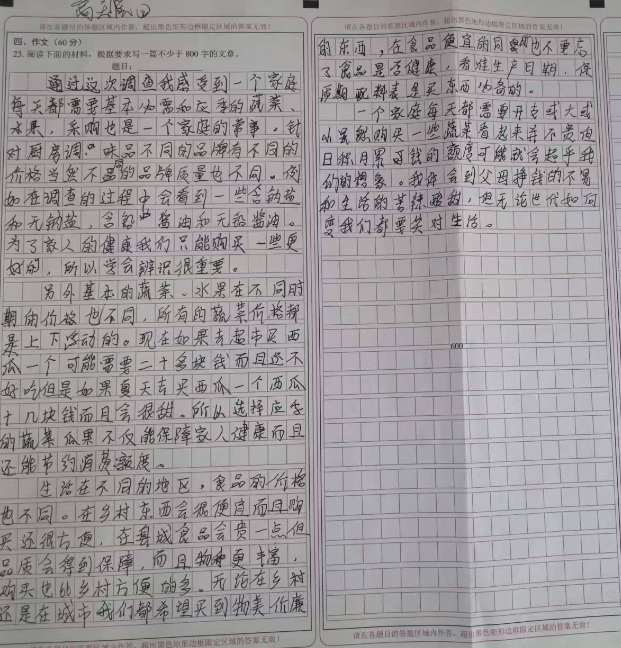 请在各题目的答题区域内作答，超出黑色矩形边框限定区域的答案无效！
四、作文（60分）
23. 阅读下面的材料，根据要求写一篇不少于800字的文章。
题目：
通过这次调查我感受到一个家庭
每天都需要基本必需和应季的蔬菜、
水果，采购也是一个家庭的常事。针
对厨房调味品不同的品牌有不同的
价格当然不同的品牌质量也不同。例
如在调查的过程中会看到一些含钠盐
和无钠盐，含铅酱油和无铅酱油。
为了家人的健康我们只能购买一些更
好的，所以学会辨识很重要。
另外基本的蔬菜、水果在不同时
期的价格也不同，所有的蔬菜价格都
是上下浮动的。现在如果去超市买西
瓜一个可能需要二十多块钱而且还不
好吃但是如果夏天去买西瓜一个西瓜
十几块钱而且会很甜。所以选择应季
的蔬菜瓜果不仅能保障家人健康而且
还能节约消费额度。
生活在不同的地区，食品的价格
也不同。在乡村东西会很便宜而且购
买还很方便，在县城食品会贵一点但
品质会得到保障，而且物种更丰富，
购买也比乡村方便的多。无论在乡村
还是在城市我们都希望买到物美价廉
的东西，在食品便宜的同时也不要忘
了食品是否健康，看准生产日期，保
质期配料表是买东西必备的。
一个家庭每天都需要开支或大或
小虽然购买一些蔬菜看起来并不贵但
日积月累可钱的额度可能就会超乎我
们的想象。我体会到父母挣钱的不易
和生活的苦辣酸甜，但无论世代如何
变我们都要笑对生活。
600
请在各题目的答题区域内作答，超出黑色矩形边框限定区域的答案无效！